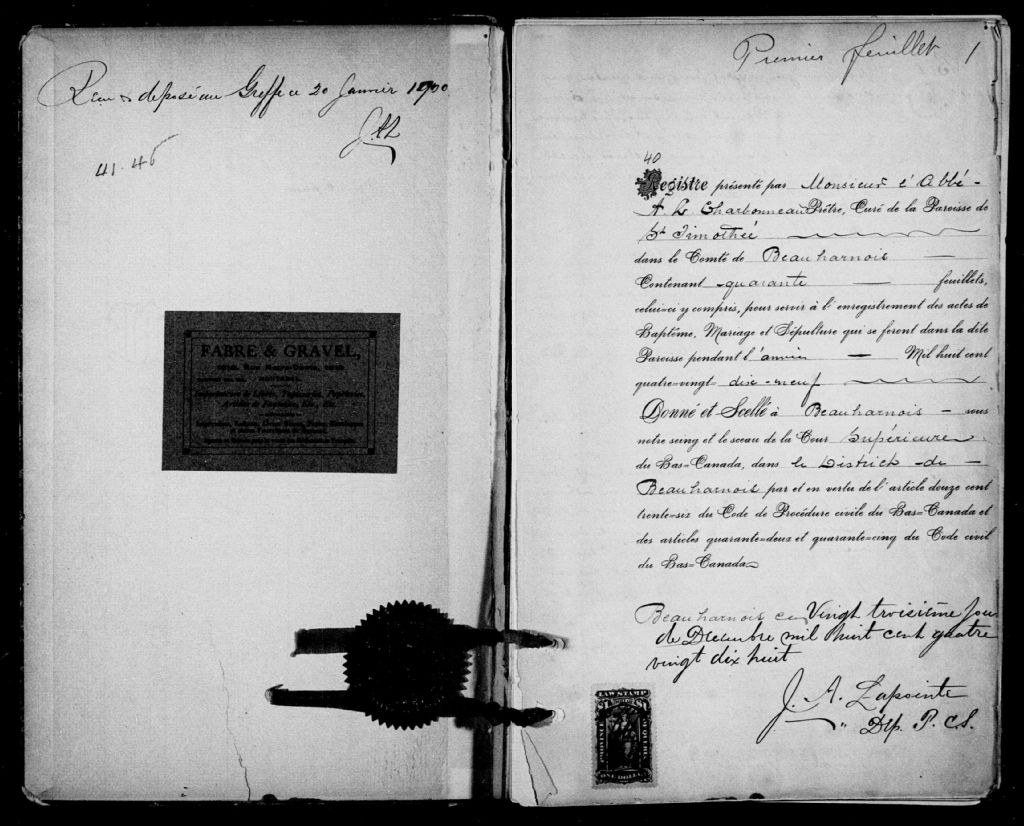 Reçu & déposé au Greffe ce 20 Janvier 1900
41-46
FABRE & GRAVEL,
Premier feuillet 1
40
Registre présenté par Monsieur l'Abbé -
A. L. Charbonneau Prêtre, Curé de la Paroisse de
St Timothée
dans le Comté de Beauharnois —
Contenant - quarante — feuillets,
celui=ci y compris, pour servir à l'enregistrement des actes de
Baptême, Mariage et Sépulture qui se feront dans la dite
Paroisse pendant l'année — Mil huit cent
quatre=vingt dix-neuf
Donné et Scellé à Beauharnois - sous
notre seing et le sceau de la Cour Supérieure
du Bas=Canada, dans le District - de -
Beauharnois par et en vertu de l'article douze cent
trente=six du Code de Procédure civile du Bas=Canada et
des articles quarante=deux et quarante=cinq du Code civil
du Bas=Canada
Beauharnois ce Vingt troisième jour
de Décembre mil huit cent quatre
vingt dix huit
J. A. Lapointe
" Dép. P. C. S.
LAW STAMP
PROVINCE
QUEBEC
ONE DOLLAR